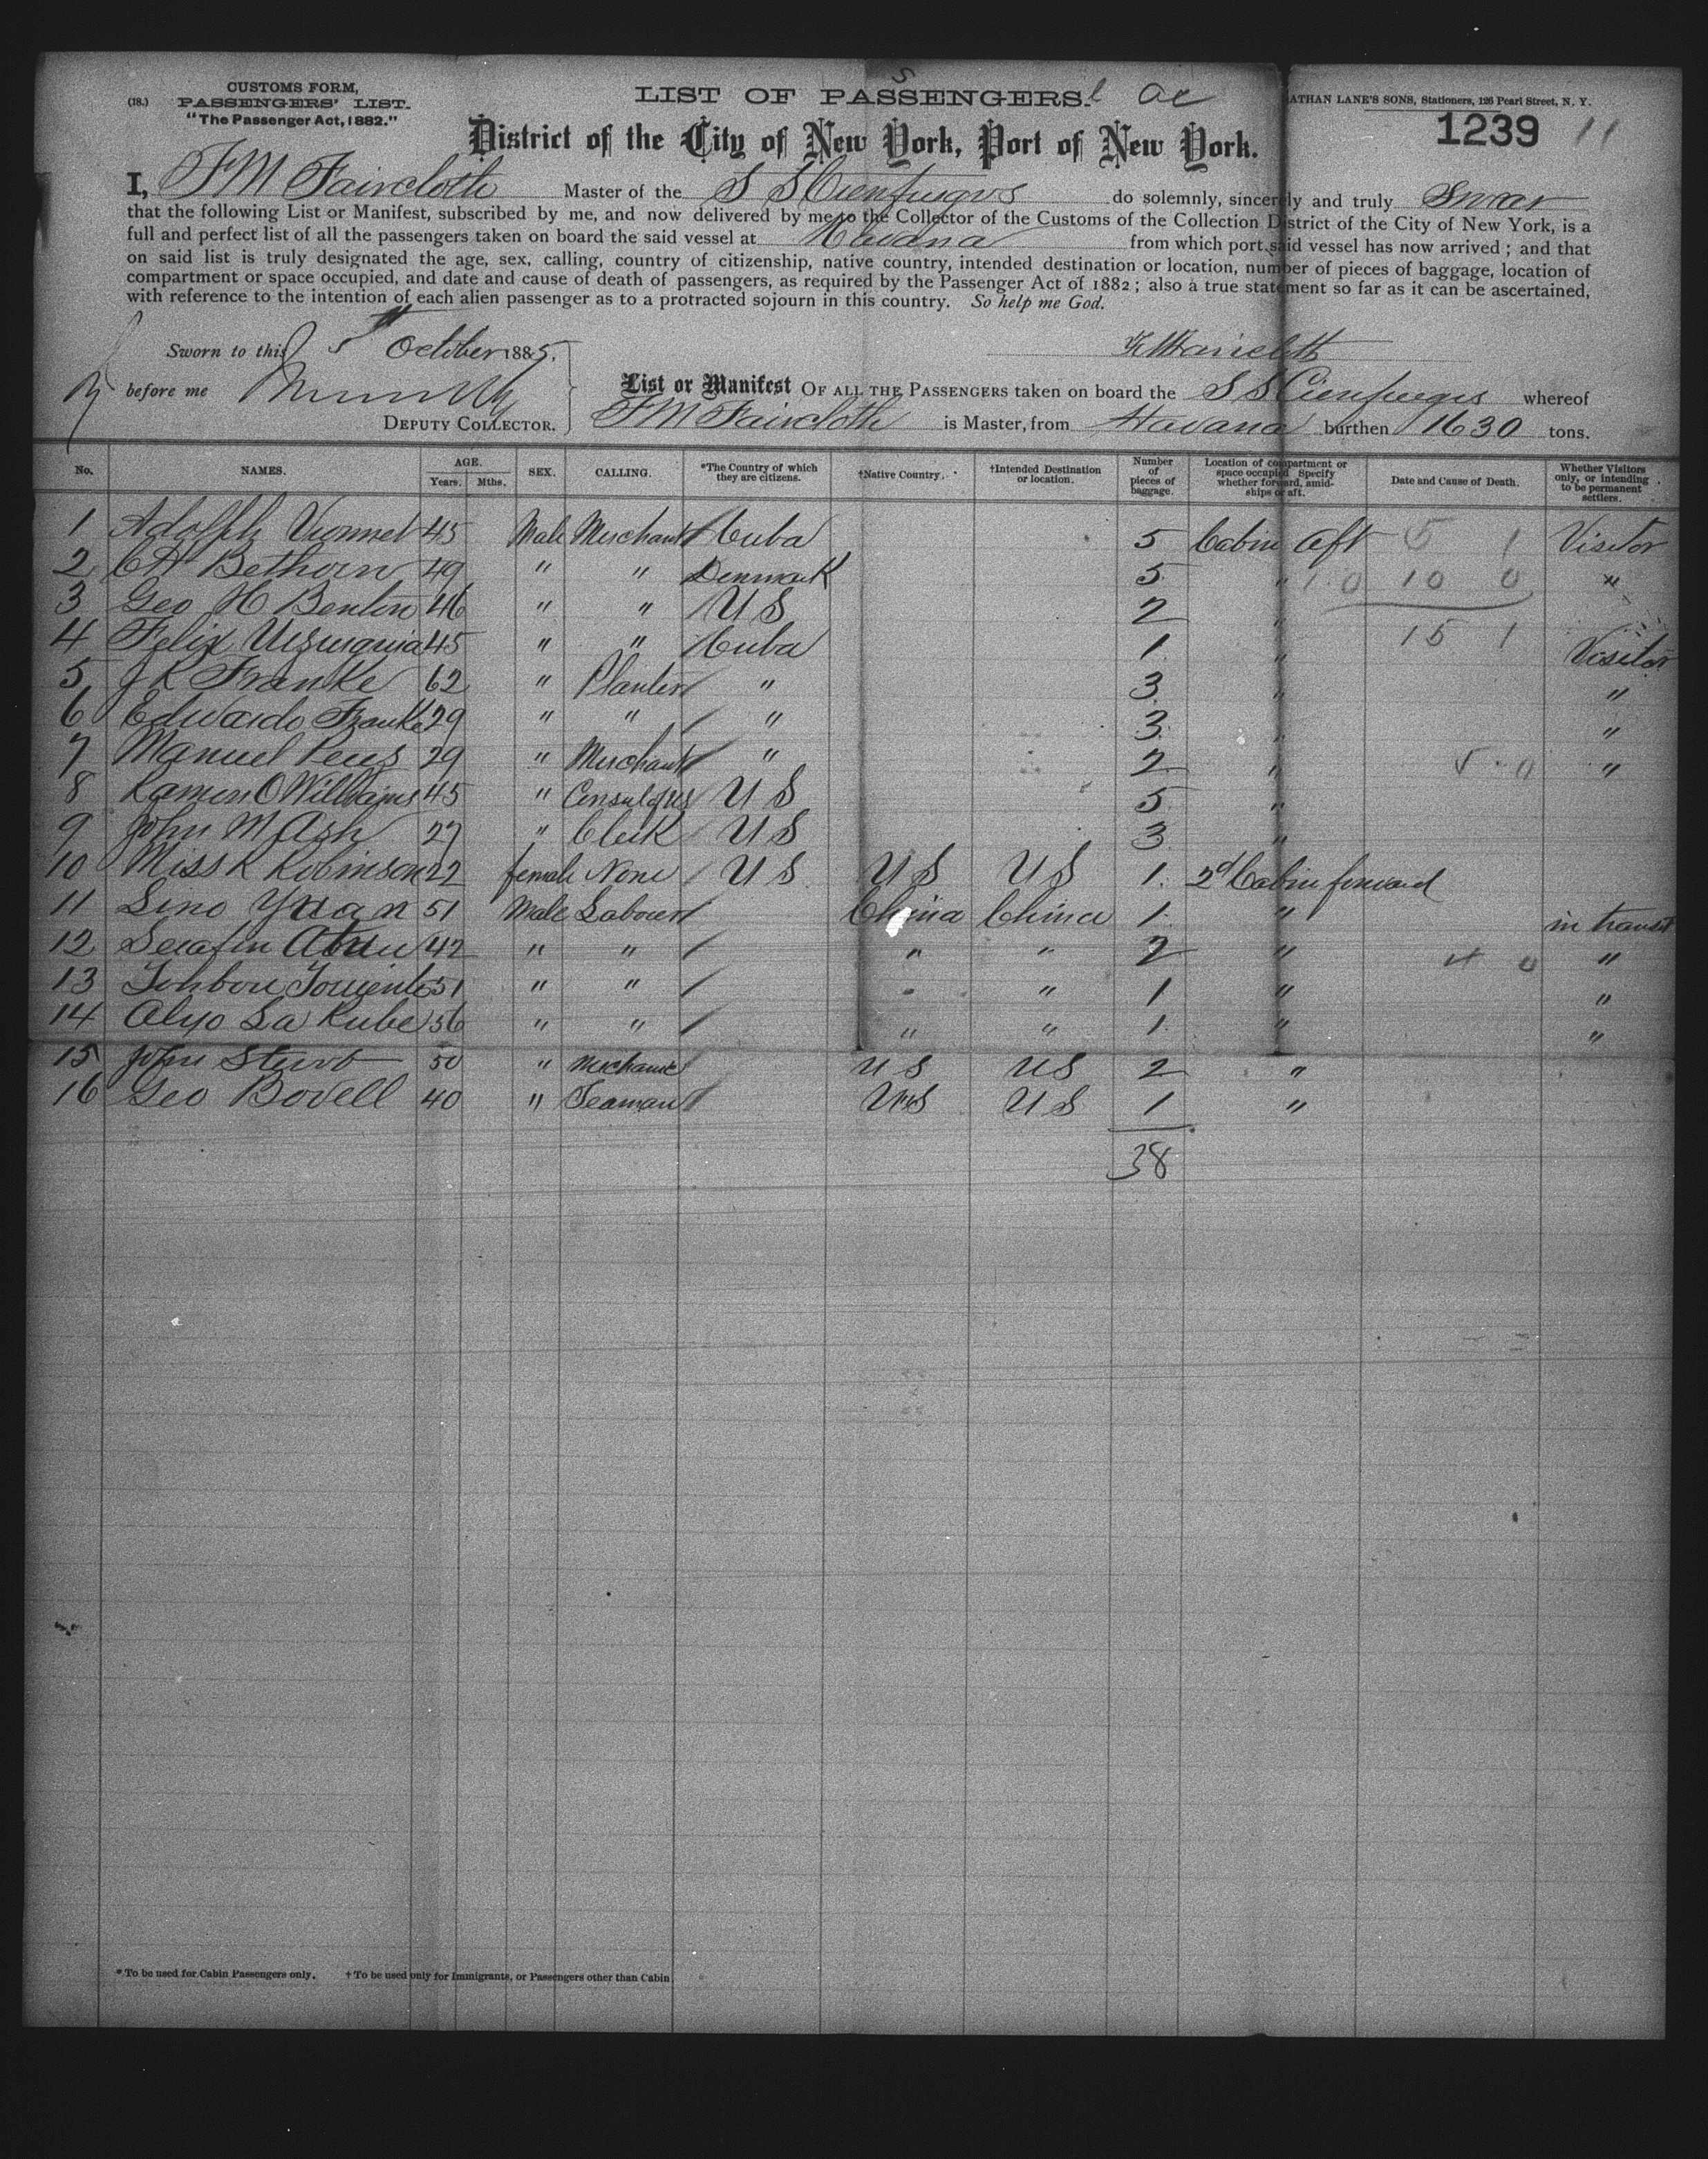 CUSTOMS FORM,
(18.) PASSENGERS' LIST.
"The Passenger Act, 1882."
LIST OF PASSENGERS.
ATHAN LANE'S SONS, Stationers, 126 Pearl Street, N. Y.
1239 11
District of the City of New York, Port of New York.
I, F M Faircloth Master of the S S Cienfuegos do solemnly, sincerely and truly Swear
that the following List or Manifest, subscribed by me, and now delivered by me to the Collector of the Customs of the Collection District of the City of New York, is a
full and perfect list of all the passengers taken on board the said vessel at Havana from which port said vessel has now arrived; and that
on said list is truly designated the age, sex, calling, country of citizenship, native country, intended destination or location, number of pieces of baggage, location of
compartment or space occupied, and date and cause of death of passengers, as required by the Passenger Act of 1882; also a true statement so far as it can be ascertained,
with reference to the intention of each alien passenger as to a protracted sojourn in this country. So help me God.
Sworn to this 5 October 1885.
F M Faircloth
before me
DEPUTY COLLECTOR.
List or Manifest OF ALL THE PASSENGERS taken on board the S S Cienfuegos whereof
F M Faircloth is Master, from Havana burthen 1630 tons.
No. NAMES. AGE. Years. Mths. SEX. CALLING. *The Country of which they are citizens. †Native Country. †Intended Destination or location. Number of pieces of baggage. Location of compartment or space occupied Specify whether forward, amidships or aft. Date and Cause of Death. Whether Visitors only, or intending to be permanent settlers.
1 Adolph Vionnet 45 Male Merchant Cuba 5 Cabin Aft 5 1 Visitor
2 Bethorn 49 " " Denmark 5 " 10 10 0 "
3 Geo H Benton 46 " " U S 2 "
4 Felix 45 " " Cuba 1 " 15 1 Visitor
5 J K Franke 62 " Planter " 3 " "
6 Eduardo Franke 29 " " " 3 " "
7 Manuel 29 " Merchant " 2 " 5 0 "
8 Ramon O Williams 45 " U S 5 "
9 John M Ash 27 " Clerk U S 3 "
10 Miss K Robinson 22 female None U S U S U S 1 2d Cabin forward
11 Lino Yuan 51 Male Labourer China China 1 " in transit
12 Serafin 42 " " " " 2 " 4 0 "
13 51 " " " " 1 " "
14 Alyo La Rube 56 " " " " 1 " "
15 John 50 " Mechanic U S U S 2 "
16 Geo Bovell 40 " Seaman U S U S 1 "
38
* To be used for Cabin Passengers only. † To be used only for Immigrants, or Passengers other than Cabin